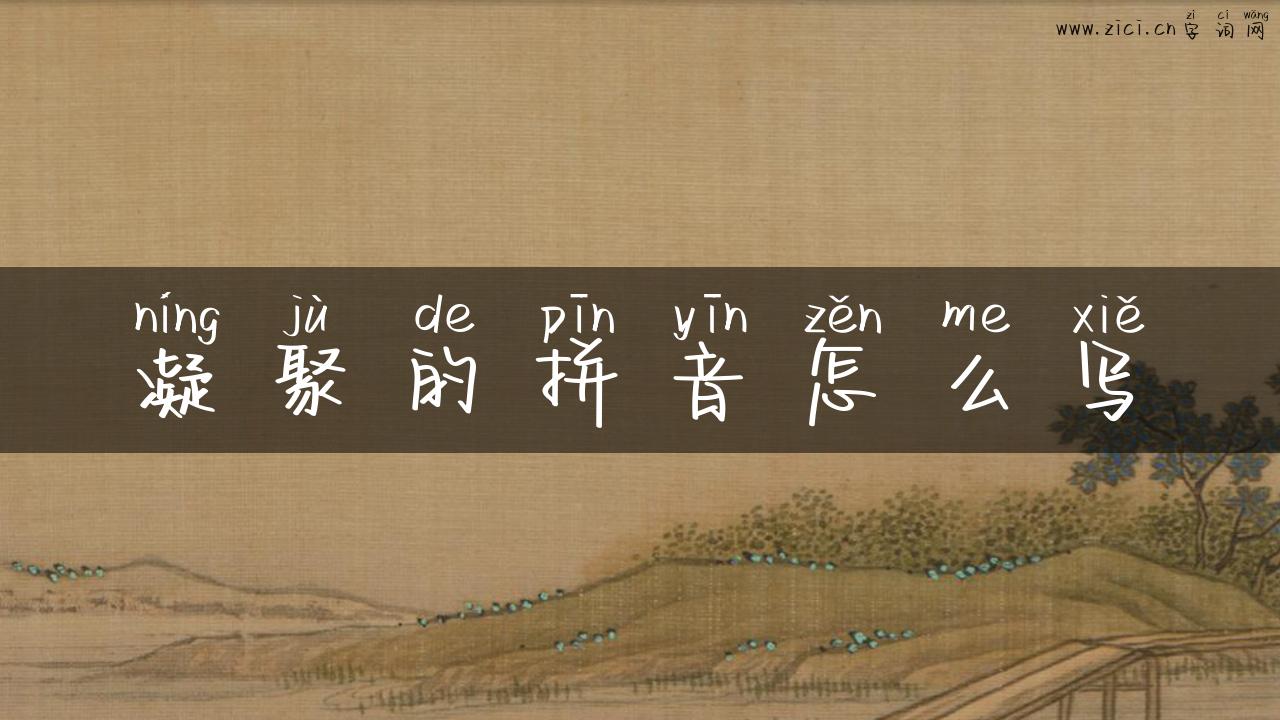 zì cí wǎng
www.zici.cn 字词网
níng jù de pīn yīn zěn me xiě
凝聚的拼音怎么写